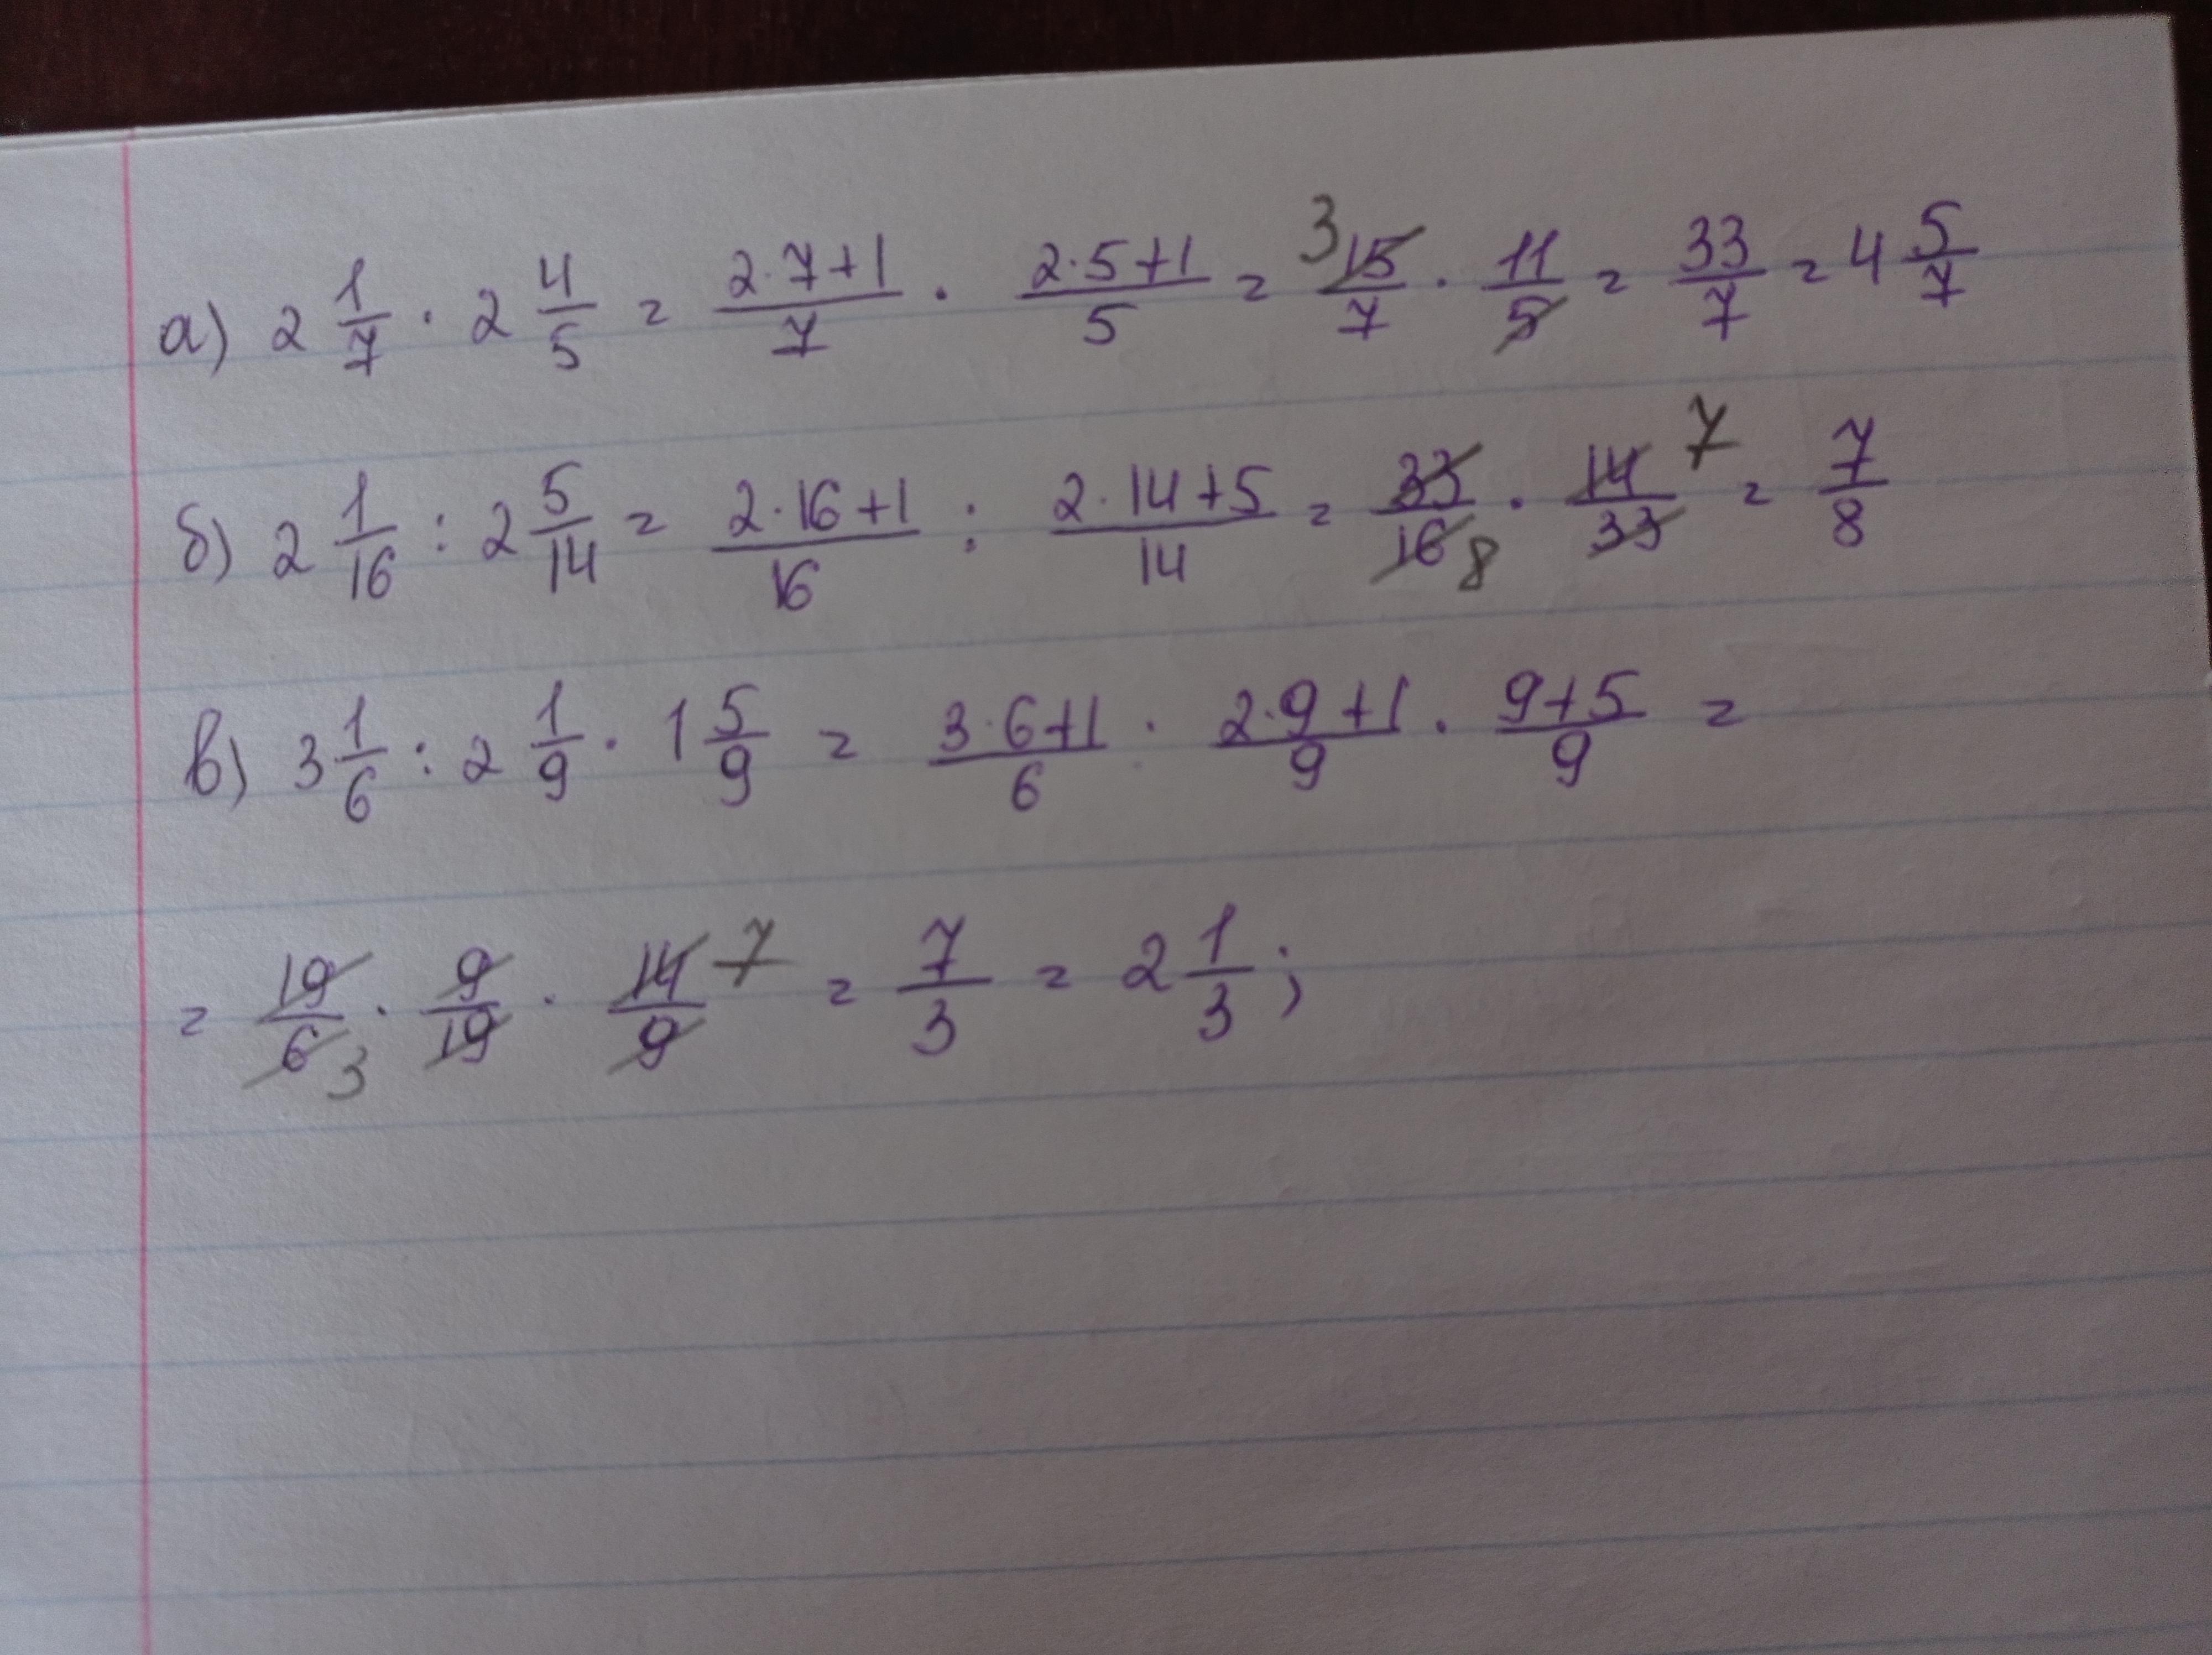 а) 2 1/7 · 2 4/5 = (2·7+1)/7 · (2·5+1)/5 = 3 15/7 · 11/5 = 33/7 = 4 5/7
б) 2 1/16 : 2 5/14 = (2·16+1)/16 : (2·14+5)/14 = 33/16 8 · 14/33 7 = 7/8
в) 3 1/6 : 2 1/9 · 1 5/9 = (3·6+1)/6 · (2·9+1)/9 · (9+5)/9 =
= 19/6 3 · 9/19 · 14/9 7 = 7/3 = 2 1/3;